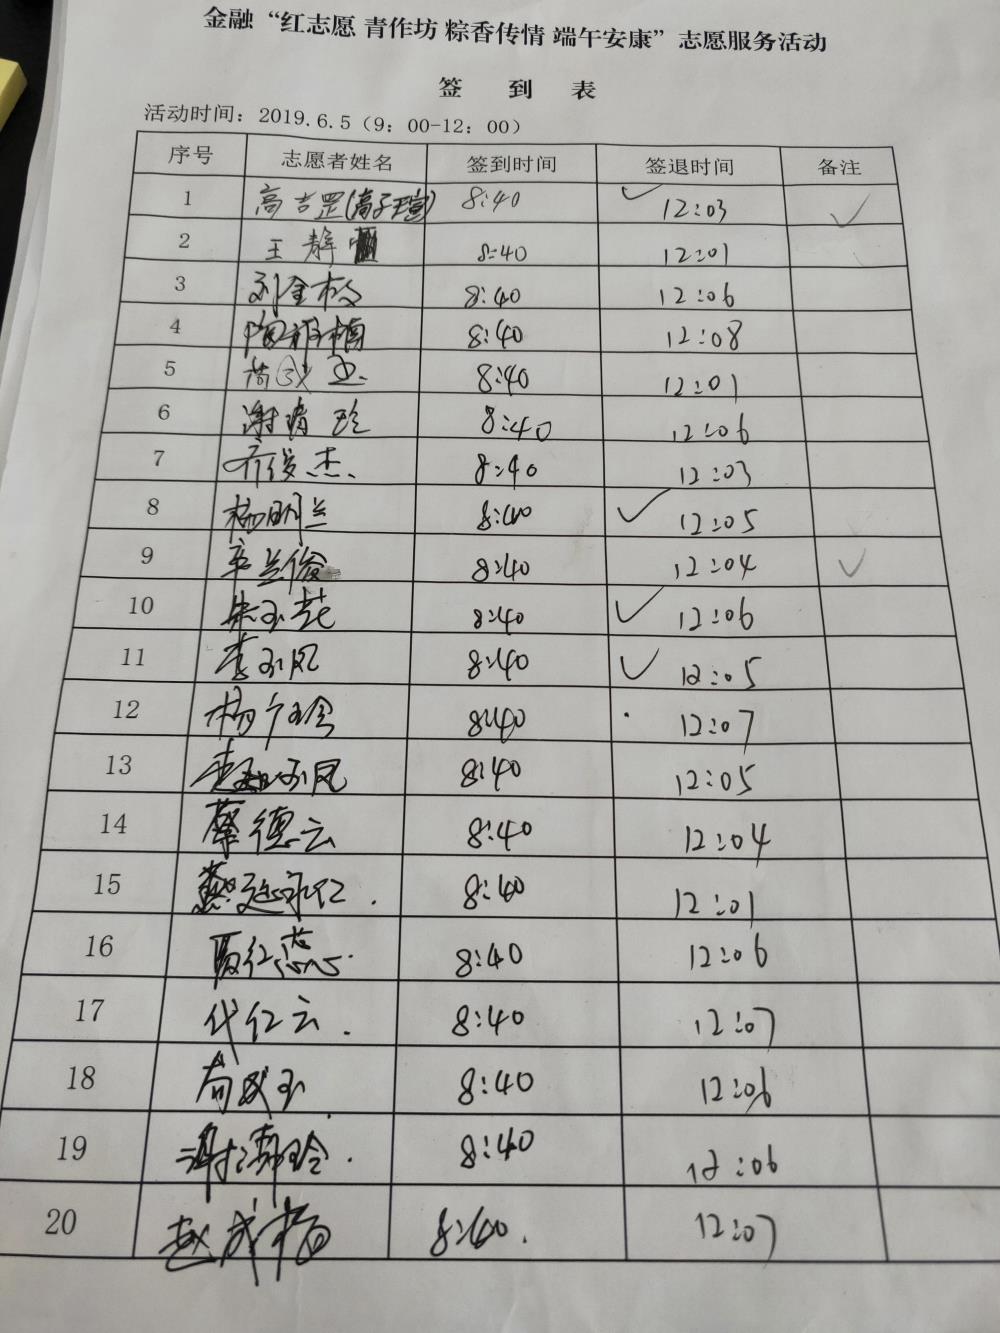 金融“红志愿 青作坊 粽香传情 端午安康”志愿服务活动
签 到 表
活动时间：2019.6.5（9：00-12：00）
序号 志愿者姓名 签到时间 签退时间 备注
1 高吉罡(高子瑄) 8:40 ✓ 12:03 ✓
2 王静 8:40 12:01
3 刘金 8:40 12:06
4 陶 8:40 12:08
5 苟 8:40 12:01
6 谢 8:40 12:06
7 乔俊杰 8:40 12:03
8 杨明兰 8:40 ✓ 12:05
9 辛兰俊 8:40 12:04 ✓
10 朱玉花 8:40 ✓ 12:06
11 李玉凤 8:40 ✓ 12:05
12 杨 8:40 12:07
13 玉凤 8:40 12:05
14 德云 8:40 12:04
15 8:40 12:01
16 红蕊 8:40 12:06
17 代红云 8:40 12:07
18 苟 玉 8:40 12:06
19 谢 8:40 12:06
20 赵成 8:40 12:07